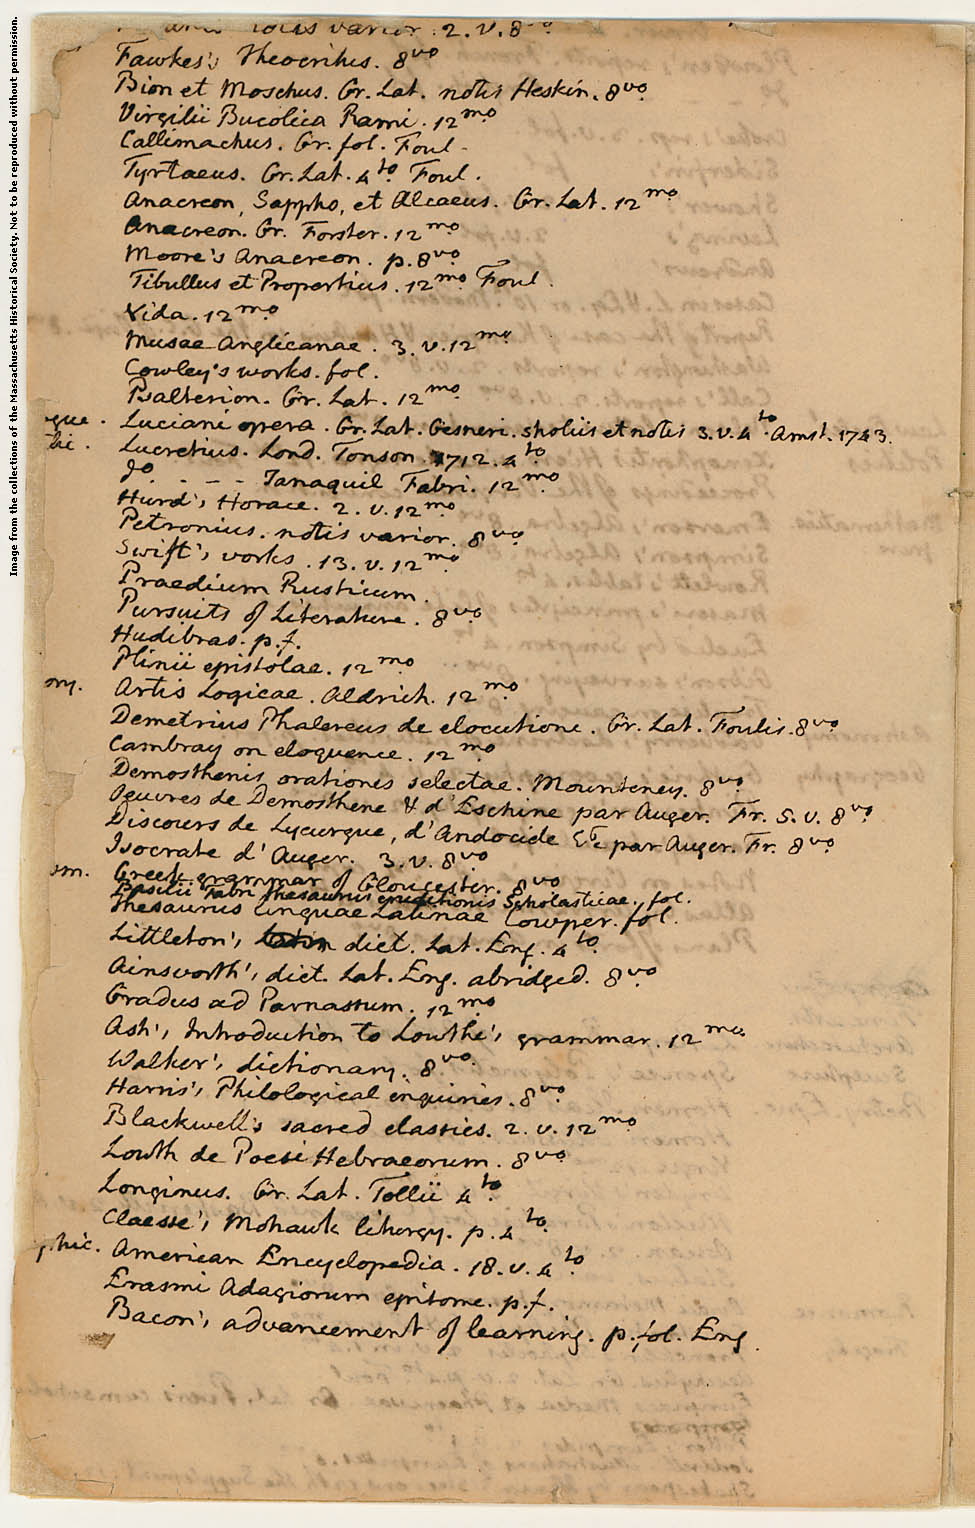 Image from the collections of the Massachusetts Historical Society. Not to be reproduced without permission.
notis varior. 2. v. 8vo
Fawkes's Theocritus. 8vo
Bion et Moschus. Gr. Lat. notis Heskin. 8vo
Virgilii Bucolica Rami. 12mo
Callimachus. Gr. fol. Foul.
Tyrtaeus. Gr. Lat. 4to Foul.
Anacreon, Sappho, et Alcaeus. Gr. Lat. 12mo
Anacreon. Gr. Forster. 12mo
Moore's Anacreon. p. 8vo
Tibullus et Propertius. 12mo Foul.
Vida. 12mo
Musae Anglicanae. 3. v. 12mo
Cowley's works. fol.
Psalterion. Gr. Lat. 12mo
gue. Luciani opera. Gr. Lat. Gesneri. sholiis et notis 3. v. 4to Amst. 1743.
tic. Lucretius. Lond. Tonson. 1712. 4to
do - - - - Tanaquil Fabri. 12mo
Hurd's Horace. 2. v. 12mo
Petronius. notis varior. 8vo
Swift's works. 13. v. 12mo
Praedium Rusticum.
Pursuits of Literature. 8vo
Hudibras. p. f.
Plinii epistolae. 12mo
ory. Artis Logicae. Aldrich. 12mo
Demetrius Phalereus de elocutione. Gr. Lat. Foulis. 8vo
Cambray on eloquence. 12mo
Demosthenis orationes selectae. Mounteney. 8vo
Oeuvres de Demosthene & d'Eschine par Auger. Fr. 5. v. 8vo
Discours de Lycurgue, d'Andocide &c par Auger. Fr. 8vo
Isocrate d'Auger. 3. v. 8vo
sm. Greek grammar of Gloucester. 8vo
Basilii Fabri Thesaurus eruditionis Scholasticae. fol.
Thesaurus linguae Latinae Cowper. fol.
Littleton's dict. Lat. Eng. 4to
Ainsworth's dict. Lat. Eng. abridged. 8vo
Gradus ad Parnassum. 12mo
Ash's Introduction to Lowthe's grammar. 12mo
Walker's dictionary. 8vo
Harris's Philological enquiries. 8vo
Blackwell's sacred classics. 2. v. 12mo
Lowth de Poesi Hebraeorum. 8vo
Longinus. Gr. Lat. Tollii 4to
Claesse's Mohawk liturgy. p. 4to
phic. American Encyclopedia. 18. v. 4to
Erasmi Adagiorum epitome. p. f.
Bacon's advancement of learning. p. fol. Eng.